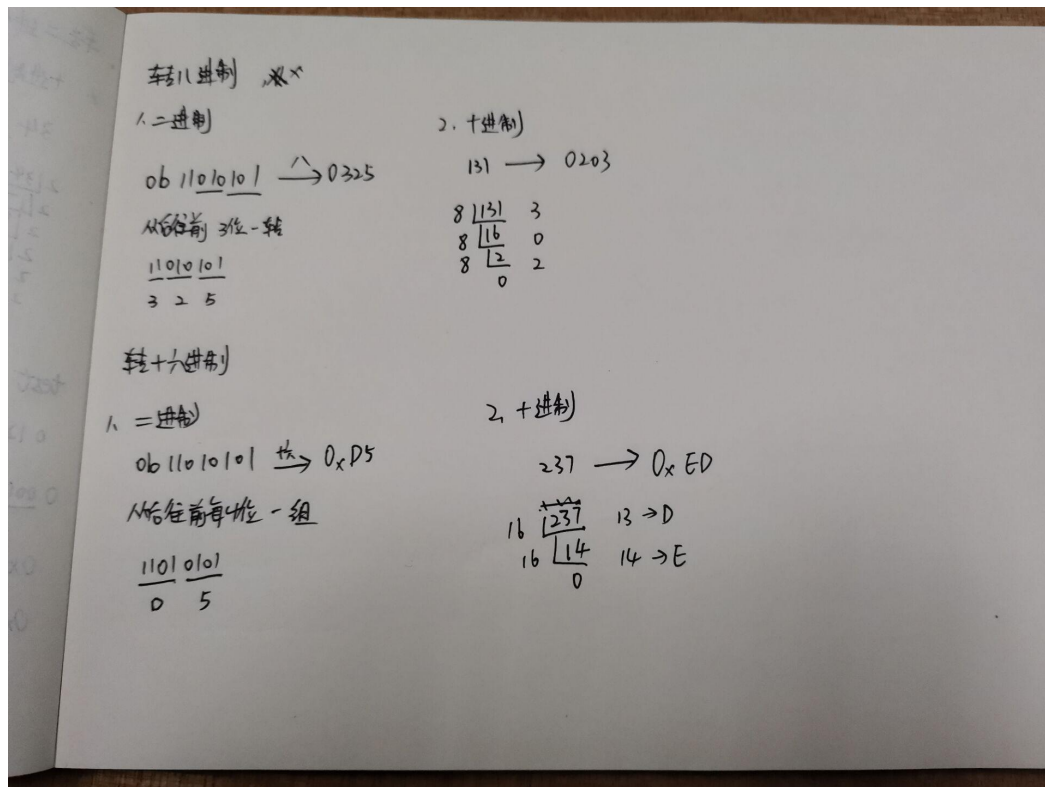 转八进制
1、二进制
0b 11010101 八→ 0325
从后往前 3位一转
11 010 101
3 2 5
2、十进制
131 → 0203
8 131 3
8 16 0
8 2 2
0
转十六进制
1、二进制
0b 11010101 十六→ 0xD5
从后往前每4位一组
1101 0101
D 5
2、十进制
237 → 0x ED
16 237 13→D
16 14 14→E
0